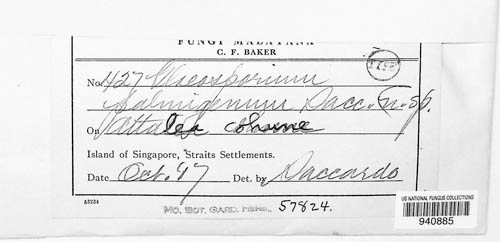 FUNGI MALAYANA
C. F. BAKER
No. 427 Gloeosporium
palmigenum Sacc. n. sp.
On Attalea cohune
Island of Singapore, Straits Settlements.
Date Oct. '17 Det. by Saccardo
63234
MO. BOT. GARD. HERB. 57824.
US NATIONAL FUNGUS COLLECTIONS
940885